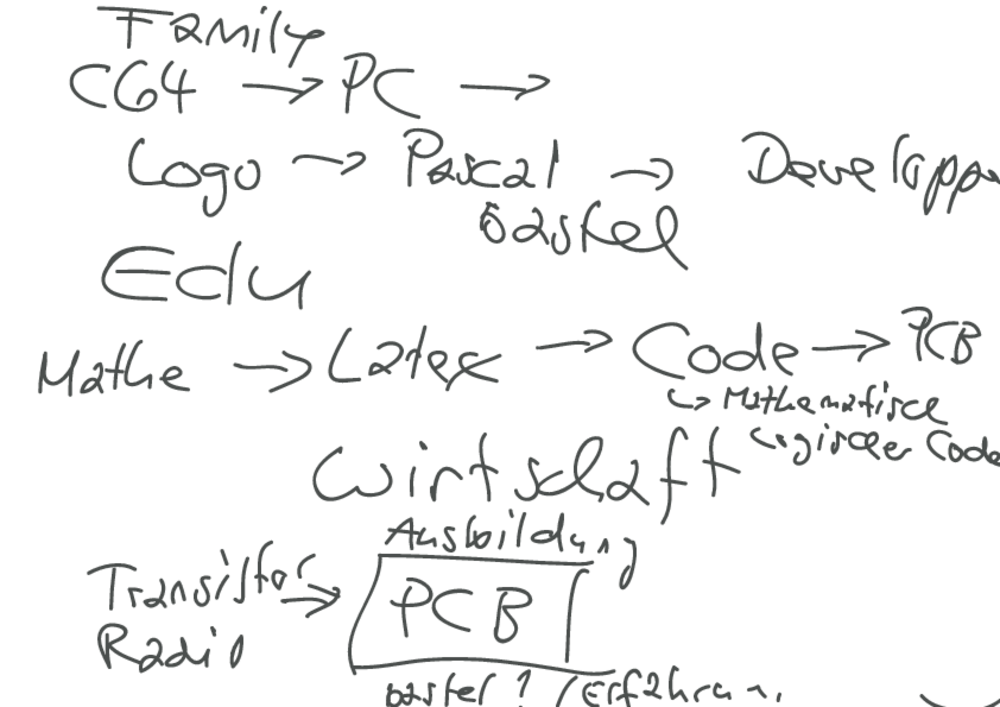 Family
C64 → PC →
Logo → Pascal →
bastel
Edu
Mathe → Latex → Code → PCB
↳ Mathematisce
Logischer Code
Wirtschaft
Ausbildung
Transistor → PCB
Radio
bastel ! / Erfahrun